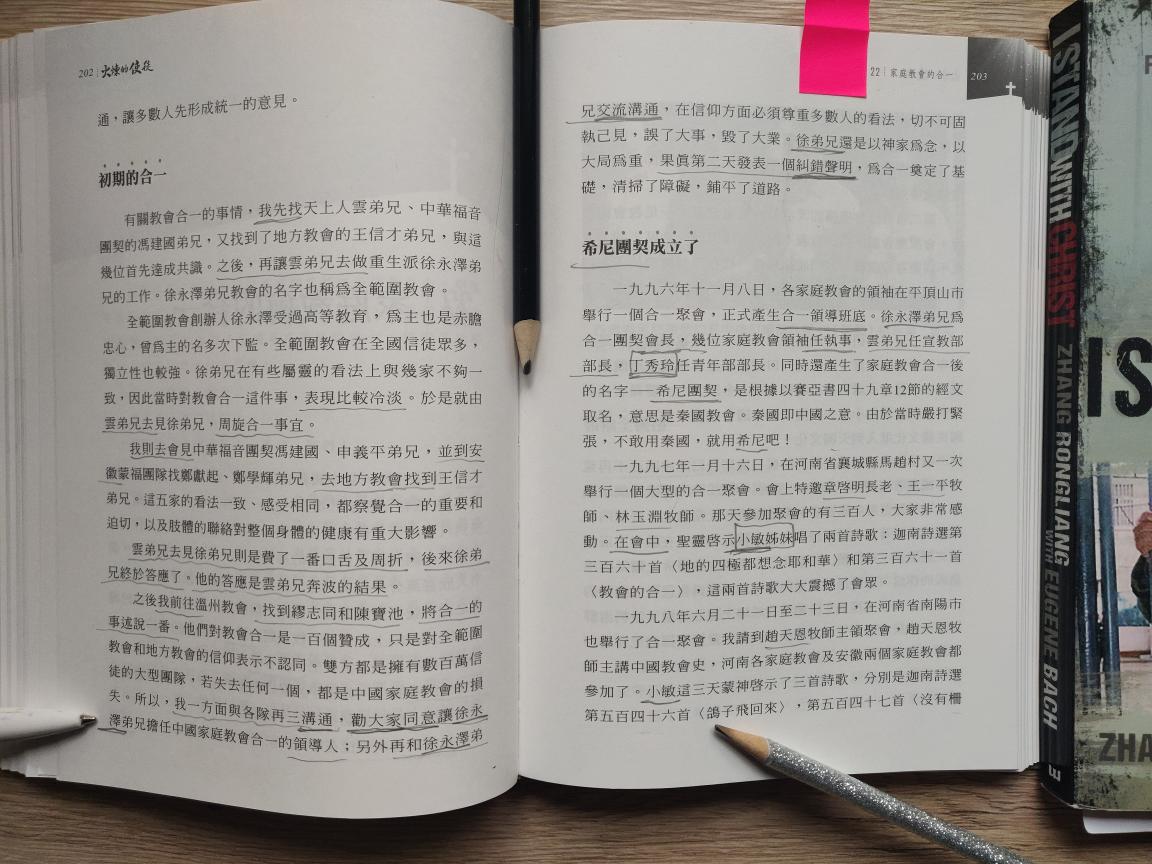 202 | 火煉的使徒
通，讓多數人先形成統一的意見。
初期的合一
有關教會合一的事情，我先找天上人雲弟兄、中華福音
團契的馮建國弟兄，又找到了地方教會的王信才弟兄，與這
幾位首先達成共識。之後，再讓雲弟兄去做重生派徐永澤弟
兄的工作。徐永澤弟兄教會的名字也稱爲全範圍教會。
全範圍教會創辦人徐永澤受過高等教育，爲主也是赤膽
忠心，曾爲主的名多次下監。全範圍教會在全國信徒眾多，
獨立性也較強。徐弟兄在有些屬靈的看法上與幾家不夠一
致，因此當時對教會合一這件事，表現比較冷淡。於是就由
雲弟兄去見徐弟兄，周旋合一事宜。
我則去會見中華福音團契馮建國、申義平弟兄，並到安
徽蒙福團隊找鄭獻起、鄭學輝弟兄，去地方教會找到王信才
弟兄。這五家的看法一致、感受相同，都察覺合一的重要和
迫切，以及肢體的聯絡對整個身體的健康有重大影響。
雲弟兄去見徐弟兄則是費了一番口舌及周折，後來徐弟
兄終於答應了。他的答應是雲弟兄奔波的結果。
之後我前往溫州教會，找到繆志同和陳寶池，將合一的
事述說一番。他們對教會合一是一百個贊成，只是對全範圍
教會和地方教會的信仰表示不認同。雙方都是擁有數百萬信
徒的大型團隊，若失去任何一個，都是中國家庭教會的損
失。所以，我一方面與各隊再三溝通，勸大家同意讓徐永
澤弟兄擔任中國家庭教會合一的領導人；另外再和徐永澤弟
22 | 家庭教會的合一 203
兄交流溝通，在信仰方面必須尊重多數人的看法，切不可固
執己見，誤了大事，毀了大業。徐弟兄還是以神家爲念，以
大局爲重，果眞第二天發表一個糾錯聲明，爲合一奠定了基
礎，清掃了障礙，鋪平了道路。
希尼團契成立了
一九九六年十一月八日，各家庭教會的領袖在平頂山市
舉行一個合一聚會，正式產生合一領導班底。徐永澤弟兄爲
合一團契會長，幾位家庭教會領袖任執事，雲弟兄任宣教部
部長，丁秀玲任青年部部長。同時還產生了家庭教會合一後
的名字——希尼團契，是根據以賽亞書四十九章12節的經文
取名，意思是秦國教會。秦國即中國之意。由於當時嚴打緊
張，不敢用秦國，就用希尼吧！
一九九七年一月十六日，在河南省襄城縣馬趙村又一次
舉行一個大型的合一聚會。會上特邀章啓明長老、王一平牧
師、林玉淵牧師。那天參加聚會的有三百人，大家非常感
動。在會中，聖靈啓示小敏姊妹唱了兩首詩歌：迦南詩選第
三百六十首〈地的四極都想念耶和華〉和第三百六十一首
〈教會的合一〉，這兩首詩歌大大震撼了會眾。
一九九八年六月二十一日至二十三日，在河南省南陽市
也舉行了合一聚會。我請到趙天恩牧師主領聚會，趙天恩牧
師主講中國教會史，河南各家庭教會及安徽兩個家庭教會都
參加了。小敏這三天蒙神啓示了三首詩歌，分別是迦南詩選
第五百四十六首〈鴿子飛回來〉，第五百四十七首〈沒有柵
I STAND WITH CHRIST ZHANG RONGLIANG WITH EUGENE BACH
IS
ZHA